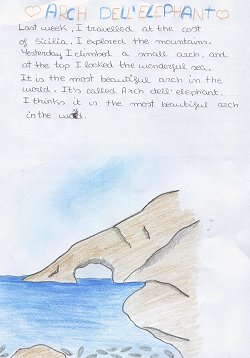 ARCH DELL'ELEPHANT
Last week, I travelled at the cost
of Sicilia. I explored the mountains.
Yesterday I climbed a small arch, and
at the top I looked the wonderful sea.
It is the most beautiful arch in the
world. It's called Arch dell'elephant.
I thinks it is the most beautiful arch
in the